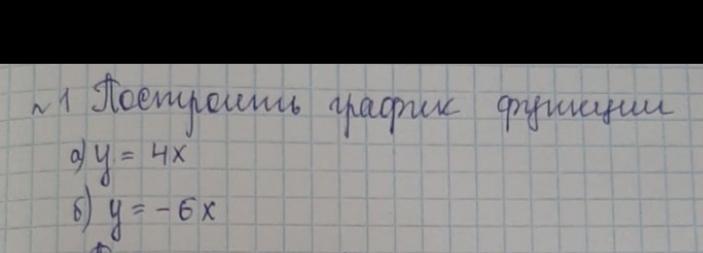 №1 Построить график функции
а) y = 4x
б) y = -6x